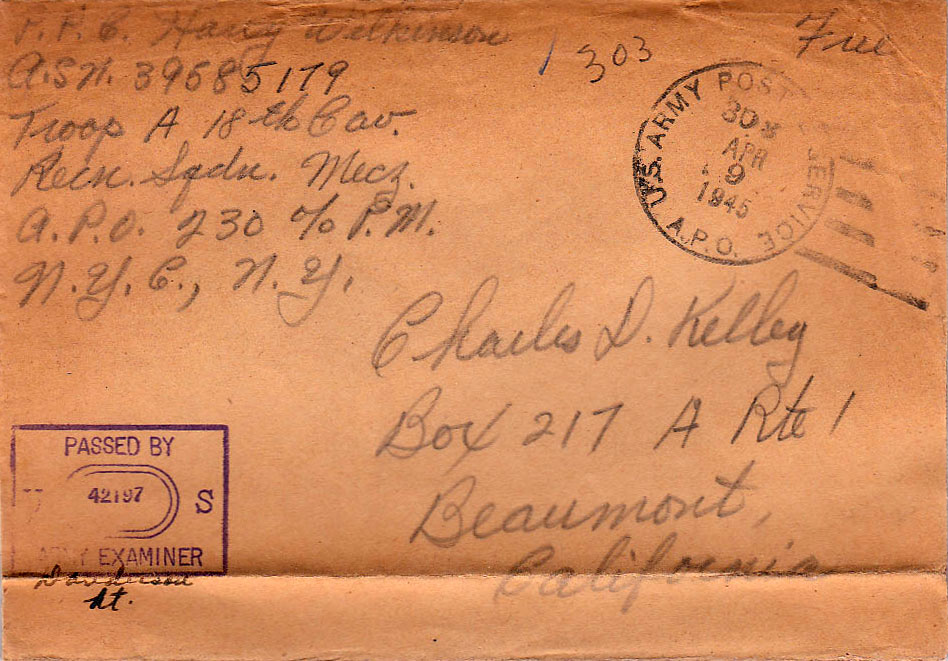 P.F.C. Harry Wilkinson
A.S.N. 39585179
Troop A 18th Cav.
Recn. Sqdn. Mecz.
A.P.O. 230 c/o P.M.
N.Y.C., N.Y.
1303
Free
U.S. ARMY POSTAL SERVICE
30
APR
9
1945
A.P.O.
Charles D. Kelley
Box 217 A Rte 1
Beaumont,
California
PASSED BY
42197
S
ARMY EXAMINER
Lt.